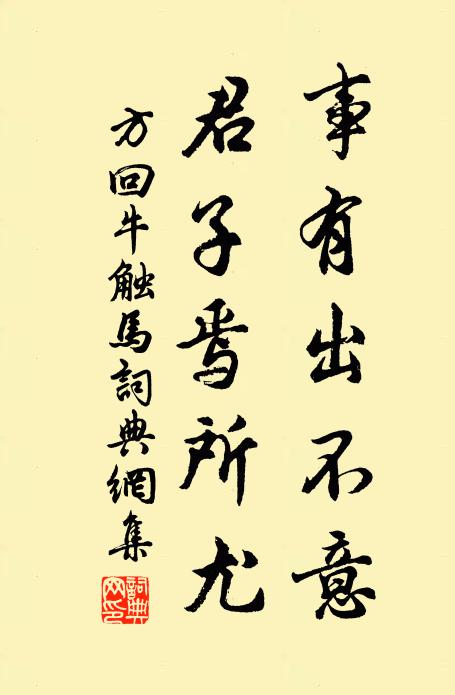 事有出不意
君子焉所尤
方回牛触馬詞典網集
詞典网印